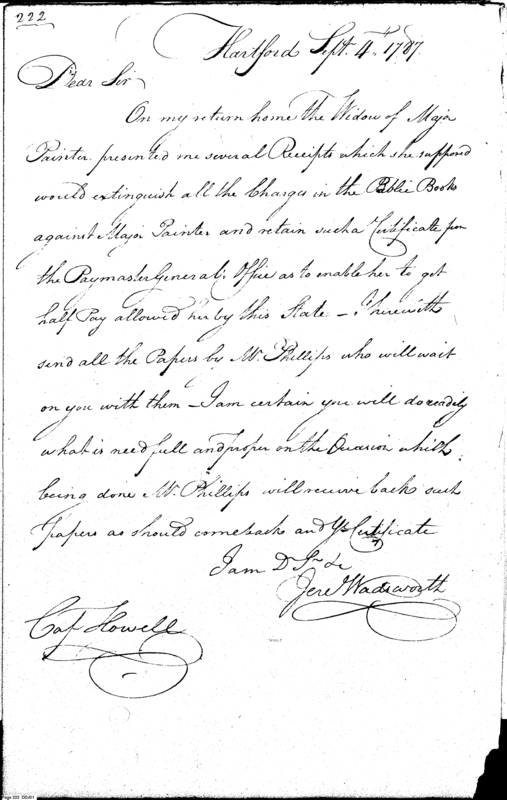 222
Hartford Septr. 4th. 1787.
Dear Sir
On my return home the Widow of Major
Painter presented me several Receipts which she supposed
would extinguish all the Charges in the Public Books
against Major Painter and retain such a Certificate from
the Paymaster General's Office as to enable her to get
half Pay allowed her by this State – I herewith
send all the Papers by Mr. Phillips who will wait
on you with them – I am certain you will do readily
what is needfull and proper on the Occasion which
being done Mr. Phillips will receive back such
Papers as should come back and ye Certificate
I am D Sr &c
Jere Wadsworth
Cap Howell
Page 222